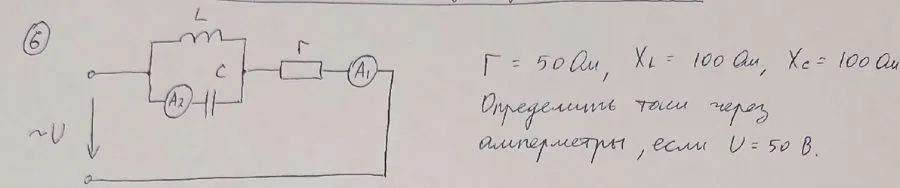 6
L
C
r
A1
A2
~U
r = 50 Ом, XL = 100 Ом, XC = 100 Ом
Определить токи через
амперметры, если U = 50 В.